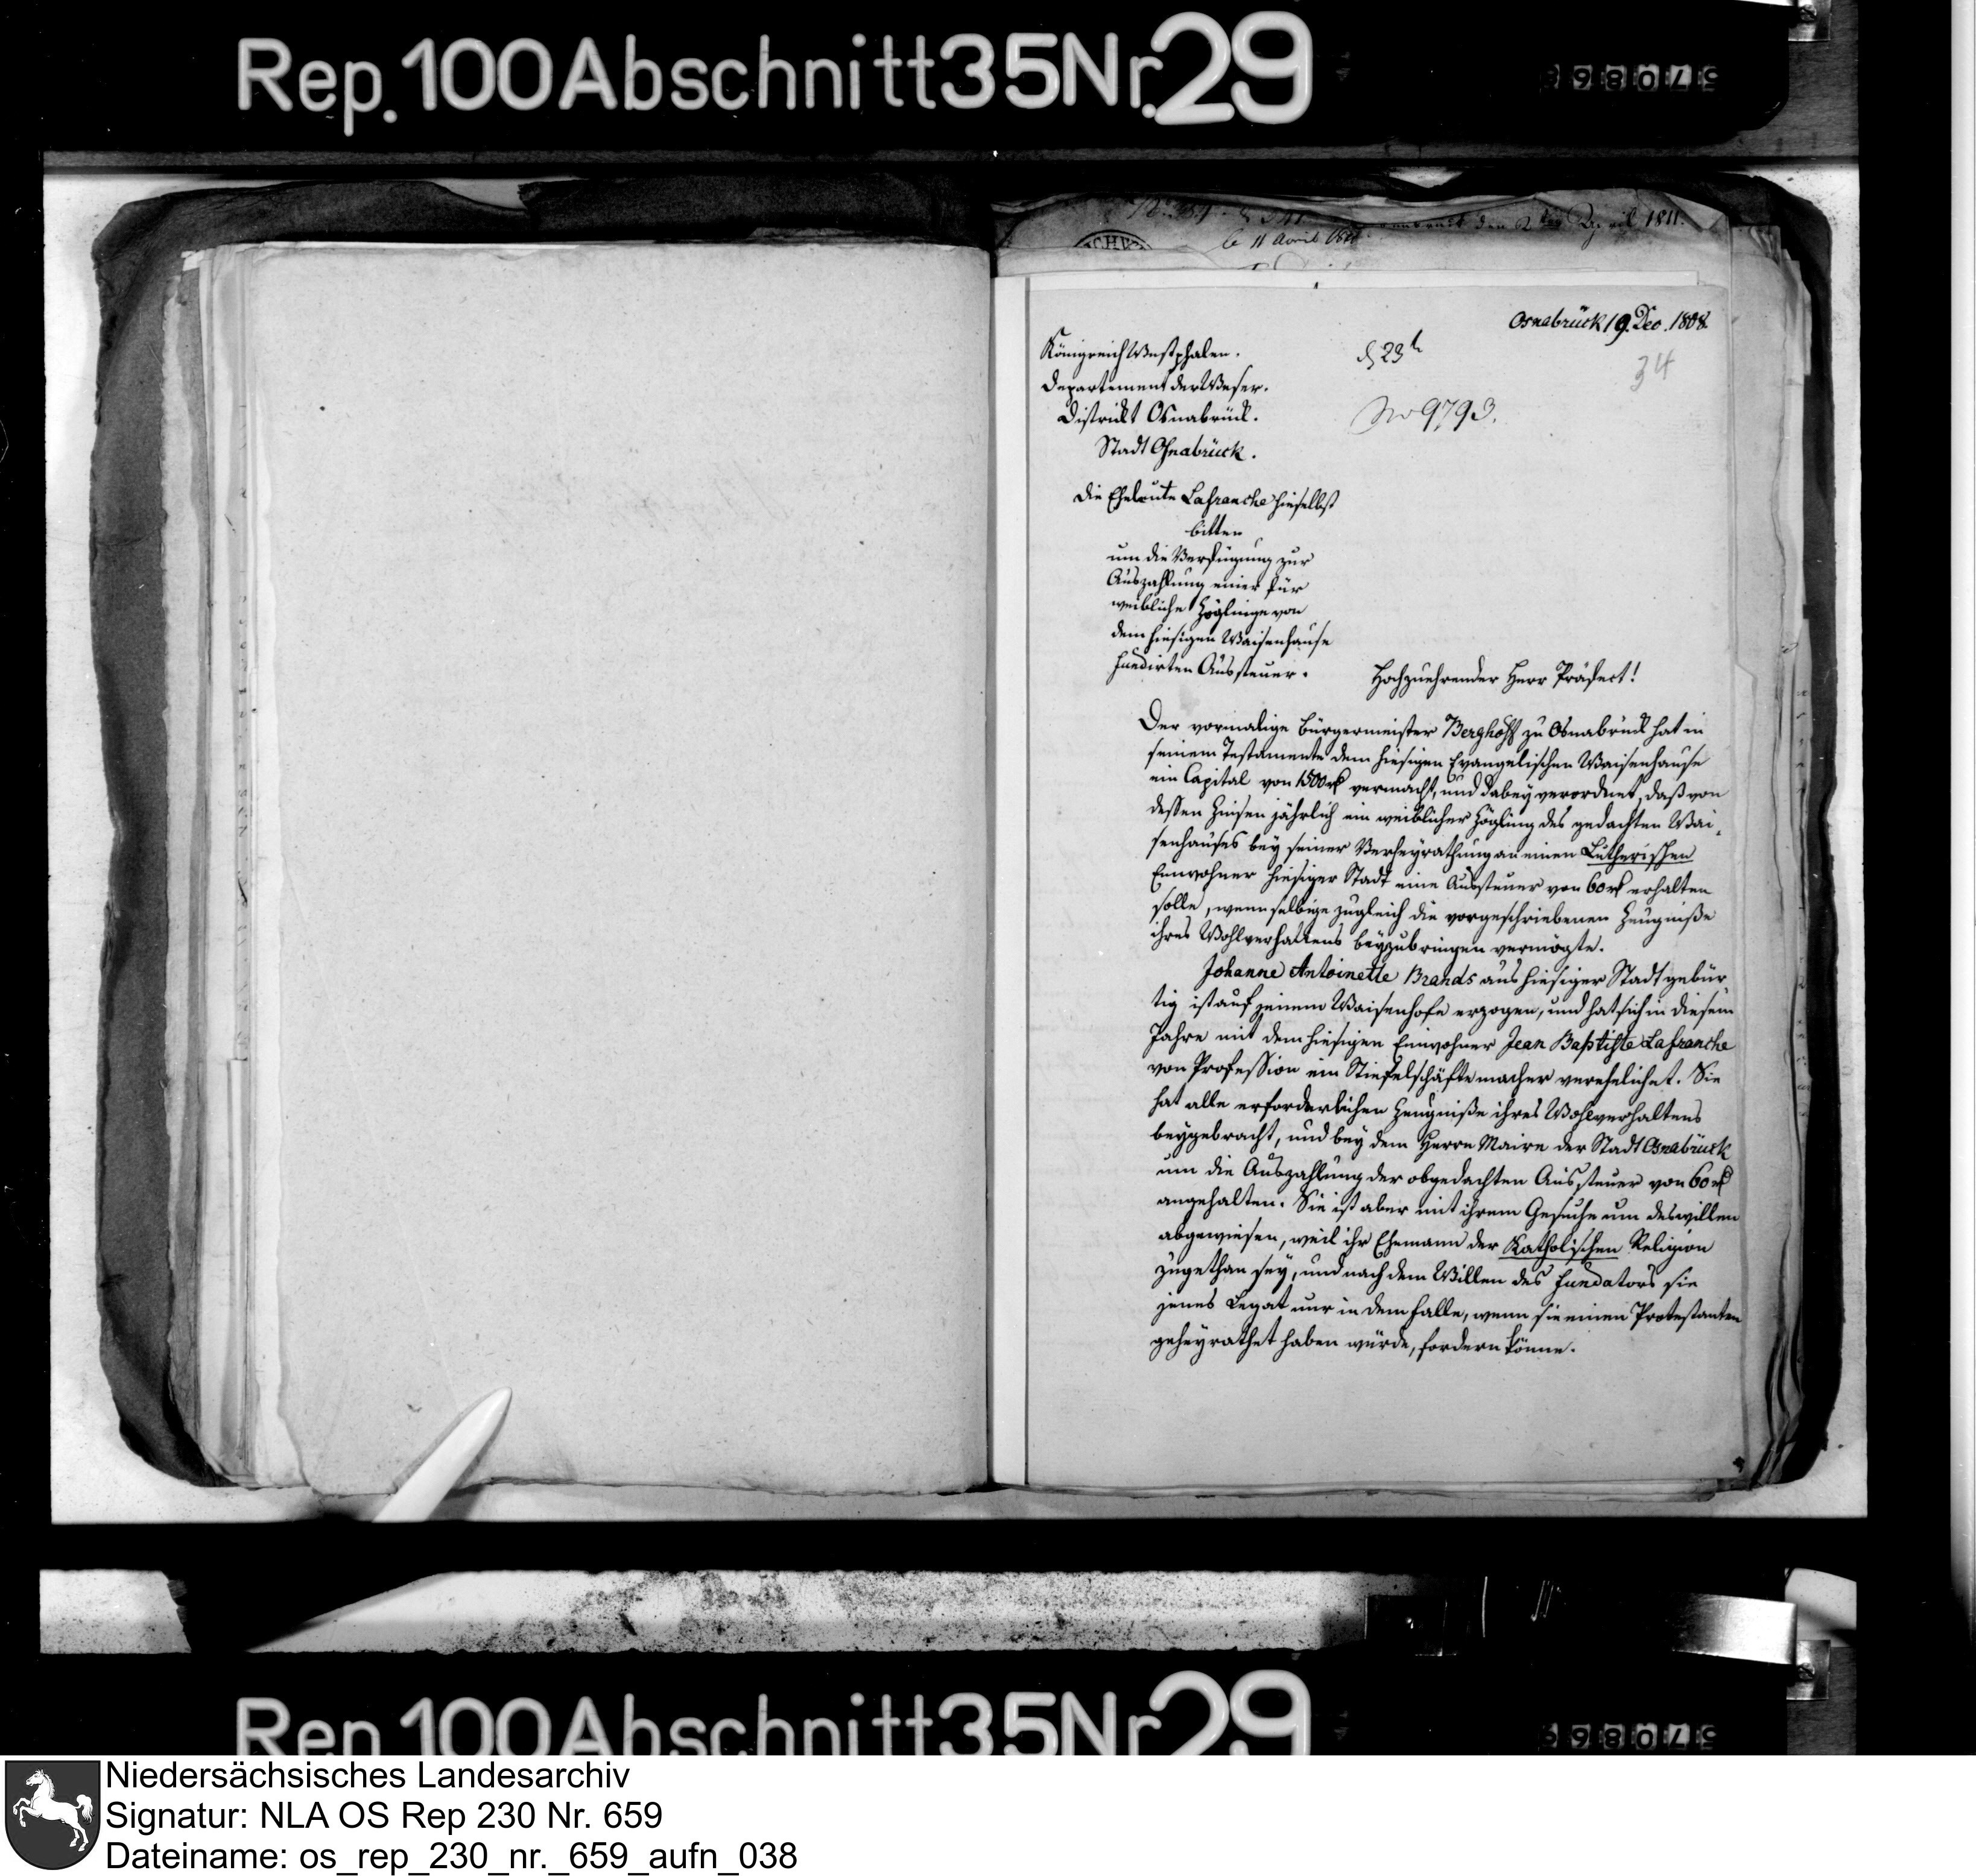 Rep. 100 Abschnitt 35 Nr. 29
le 11 Avril
April 1811.
Osnabrück 19. Dec. 1808.
34
Königreich Westphalen.
Departement der Weser.
District Osnabrück.
Stadt Osnabrück.
No 9793.
Die Eheleute Lafranche hieselbst
bitten
um die Verfügung zur
Auszahlung einer für
weibliche Zöglinge von
dem hiesigen Waisenhause
fundirten Aussteuer.
Hochzuehrender Herr Präfect!
Der vormalige Bürgermeister Berghoff zu Osnabrück hat in
seinem Testamente dem hiesigen Evangelischen Waisenhause
ein Capital von 1500 rt vermacht, und dabey verordnet, daß von
dessen Zinsen jährlich ein weiblicher Zögling des gedachten Wai-
senhauses bey seiner Verheyrathung an einen Lutherischen
Einwohner hiesiger Stadt eine Aussteuer von 60 rt erhalten
solle, wenn selbige zugleich die vorgeschriebenen Zeugniße
ihres Wohlverhaltens beyzubringen vermögte.
Johanne Antoinette Brands aus hiesiger Stadt gebür-
tig ist auf jenem Waisenhofe erzogen, und hat sich in diesem
Jahre mit dem hiesigen Einwohner Jean Baptiste Lafranche
von Profession ein Stiefelschäftemacher verehelichet. Sie
hat alle erforderlichen Zeugniße ihres Wohlverhaltens
beygebracht, und bey dem Herrn Maire der Stadt Osnabrück
um die Auszahlung der obgedachten Aussteuer von 60 rt
angehalten. Sie ist aber mit ihrem Gesuche um deswillen
abgewiesen, weil ihr Ehemann der Katholischen Religion
zugethan sey, und nach dem Willen des Fundators sie
jenes Legat nur in dem Falle, wenn sie einen Protestanten
geheyrathet haben würde, fordern könne.
Rep. 100 Abschnitt 35 Nr. 29
Niedersächsisches Landesarchiv
Signatur: NLA OS Rep 230 Nr. 659
Dateiname: os_rep_230_nr._659_aufn_038